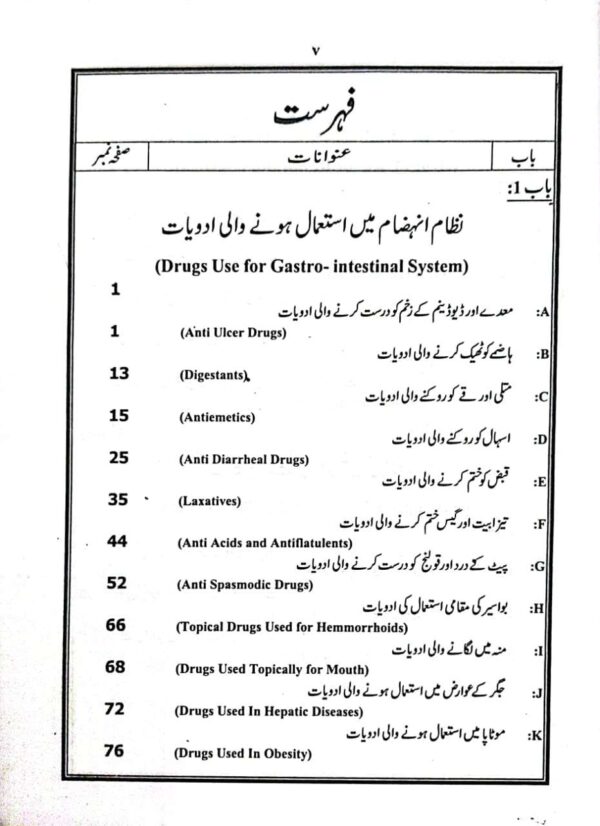 v
فہرست
باب عنوانات صفحہ نمبر
باب 1:
نظام انہضام میں استعمال ہونے والی ادویات
(Drugs Use for Gastro- intestinal System)
1
A: معدے اور ڈیوڈینم کے زخم کو درست کرنے والی ادویات
(Anti Ulcer Drugs) 1
B: ہاضمے کو ٹھیک کرنے والی ادویات
(Digestants) 13
C: متلی اور قے کو روکنے والی ادویات
(Antiemetics) 15
D: اسہال کو روکنے والی ادویات
(Anti Diarrheal Drugs) 25
E: قبض کو ختم کرنے والی ادویات
(Laxatives) 35
F: تیزابیت اور گیس ختم کرنے والی ادویات
(Anti Acids and Antiflatulents) 44
G: پیٹ کے درد اور قولنج کو درست کرنے والی ادویات
(Anti Spasmodic Drugs) 52
H: بواسیر کی مقامی استعمال کی ادویات
(Topical Drugs Used for Hemmorrhoids) 66
I: منہ میں لگانے والی ادویات
(Drugs Used Topically for Mouth) 68
J: جگر کے عوارض میں استعمال ہونے والی ادویات
(Drugs Used In Hepatic Diseases) 72
K: موٹاپا میں استعمال ہونے والی ادویات
(Drugs Used In Obesity) 76